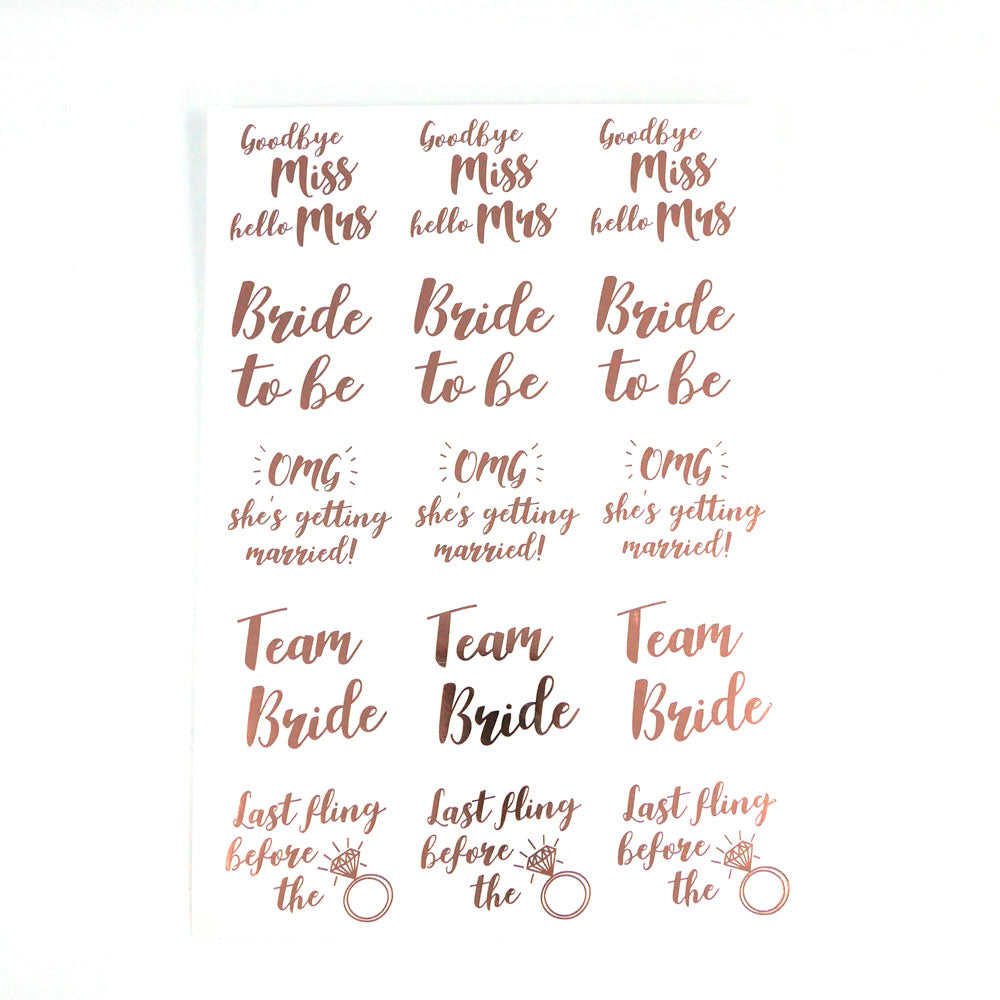 Goodbye Goodbye Goodbye
Miss Miss Miss
hello Mrs hello Mrs hello Mrs
Bride Bride Bride
to be to be to be
OMG OMG OMG
she's getting she's getting she's getting
married! married! married!
Team Team Team
Bride Bride Bride
Last fling Last fling Last fling
before before before
the the the